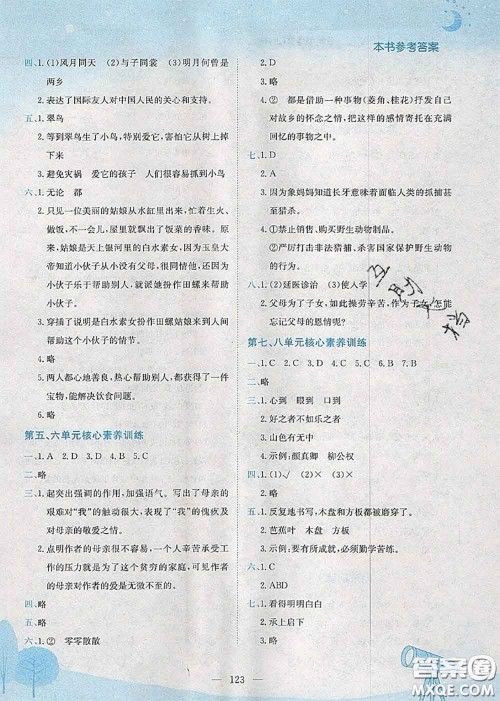 本书参考答案
四、1. (1)风月同天 (2)与子同裳 (3)明月何曾是
两乡
2. 表达了国际友人对中国人民的关心和支持。
五、1. 翠鸟
2. 等到翠鸟生鸟儿,特别爱它,害怕它从树上掉
下来
3. 避免灾祸 爱它的孩子 人们很容易抓到小鸟
六、1. 无论 都
2. 只见一位美丽的姑娘从水缸里出来,忙着生火、
做饭,不一会儿,屋里就飘出了饭菜的香味。原
来,姑娘是天上银河里的白水素女,因为玉皇大
帝知道小伙子心地善良,遇到困难从不抱怨,而
且小伙子乐于帮助别人,就派她扮作田螺来帮助
小伙子。
3. 穿插了说明了白水素女扮作田螺姑娘来帮助这
个小伙子的情节。
4. 略
5. 两人都心地善良,热心帮助别人,都获得了一件
宝物,能解决饮食问题。
第五、六单元核心素养训练
一、1. A 2. D 3. D 4. B 5. C
二、略
三、1. 起突出强调的作用,加强语气。写出了母亲的
艰难对“我”的触动很大,表现了“我”的愧疚及
对母亲的敬爱之情。
2. 点明作者的母亲很不容易,一个人辛苦工作,工
作的压力就是为了这个贫穷的家庭,可见作者
的母亲对作者的爱是无微不至的。
四、略
五、略
六、1. ② 零零散散
2. D
3. 略
4. ② 都是借助一种事物(菱角、桂花)抒发自己
对故乡的怀念之情,把这样的感情寄托在充满
回忆的事物之中。
七、1. D
2. A
3. 因为象妈妈知道长牙意味着面临人类的抓捕甚
至猎杀。
4. ①禁止销售、购买野生动物制品。
②严厉打击非法猎捕、杀害国家保护野生动物
的行为。
八、1. (2)延医诊治 (3)使入学
2. 父母为了子女,如此操劳辛苦,作为子女,怎能
忘记父母的恩情呢?
第七、八单元核心素养训练
一、1. D 2. C 3. A 4. C 5. C 6. B 7. B
二、略
三、1. 心到 眼到 口到
2. 好之者不如乐之者
3. 山色有无中
4. 示例:颜真卿 柳公权
四、1. (1)√ (2)×
2. 略
五、1. 反复地书写,木盘和方板都被磨穿了。
2. 芭蕉叶 木盘 方板
3. 示例:要有所成就,必须勤学苦练。
六、1. C
2. ABD
七、1. 看得明明白白
2. 承上启下
3. 略
4. 略
互助文档
123
答案圈
MXQE.COM